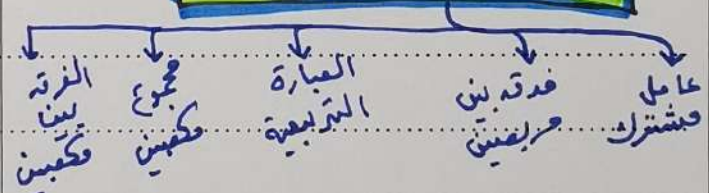 عامل
مشترك
فرق بين
مربعين
العبارة
التربيعية
مجموع
مكعبين
الفرق
بين
مكعبين